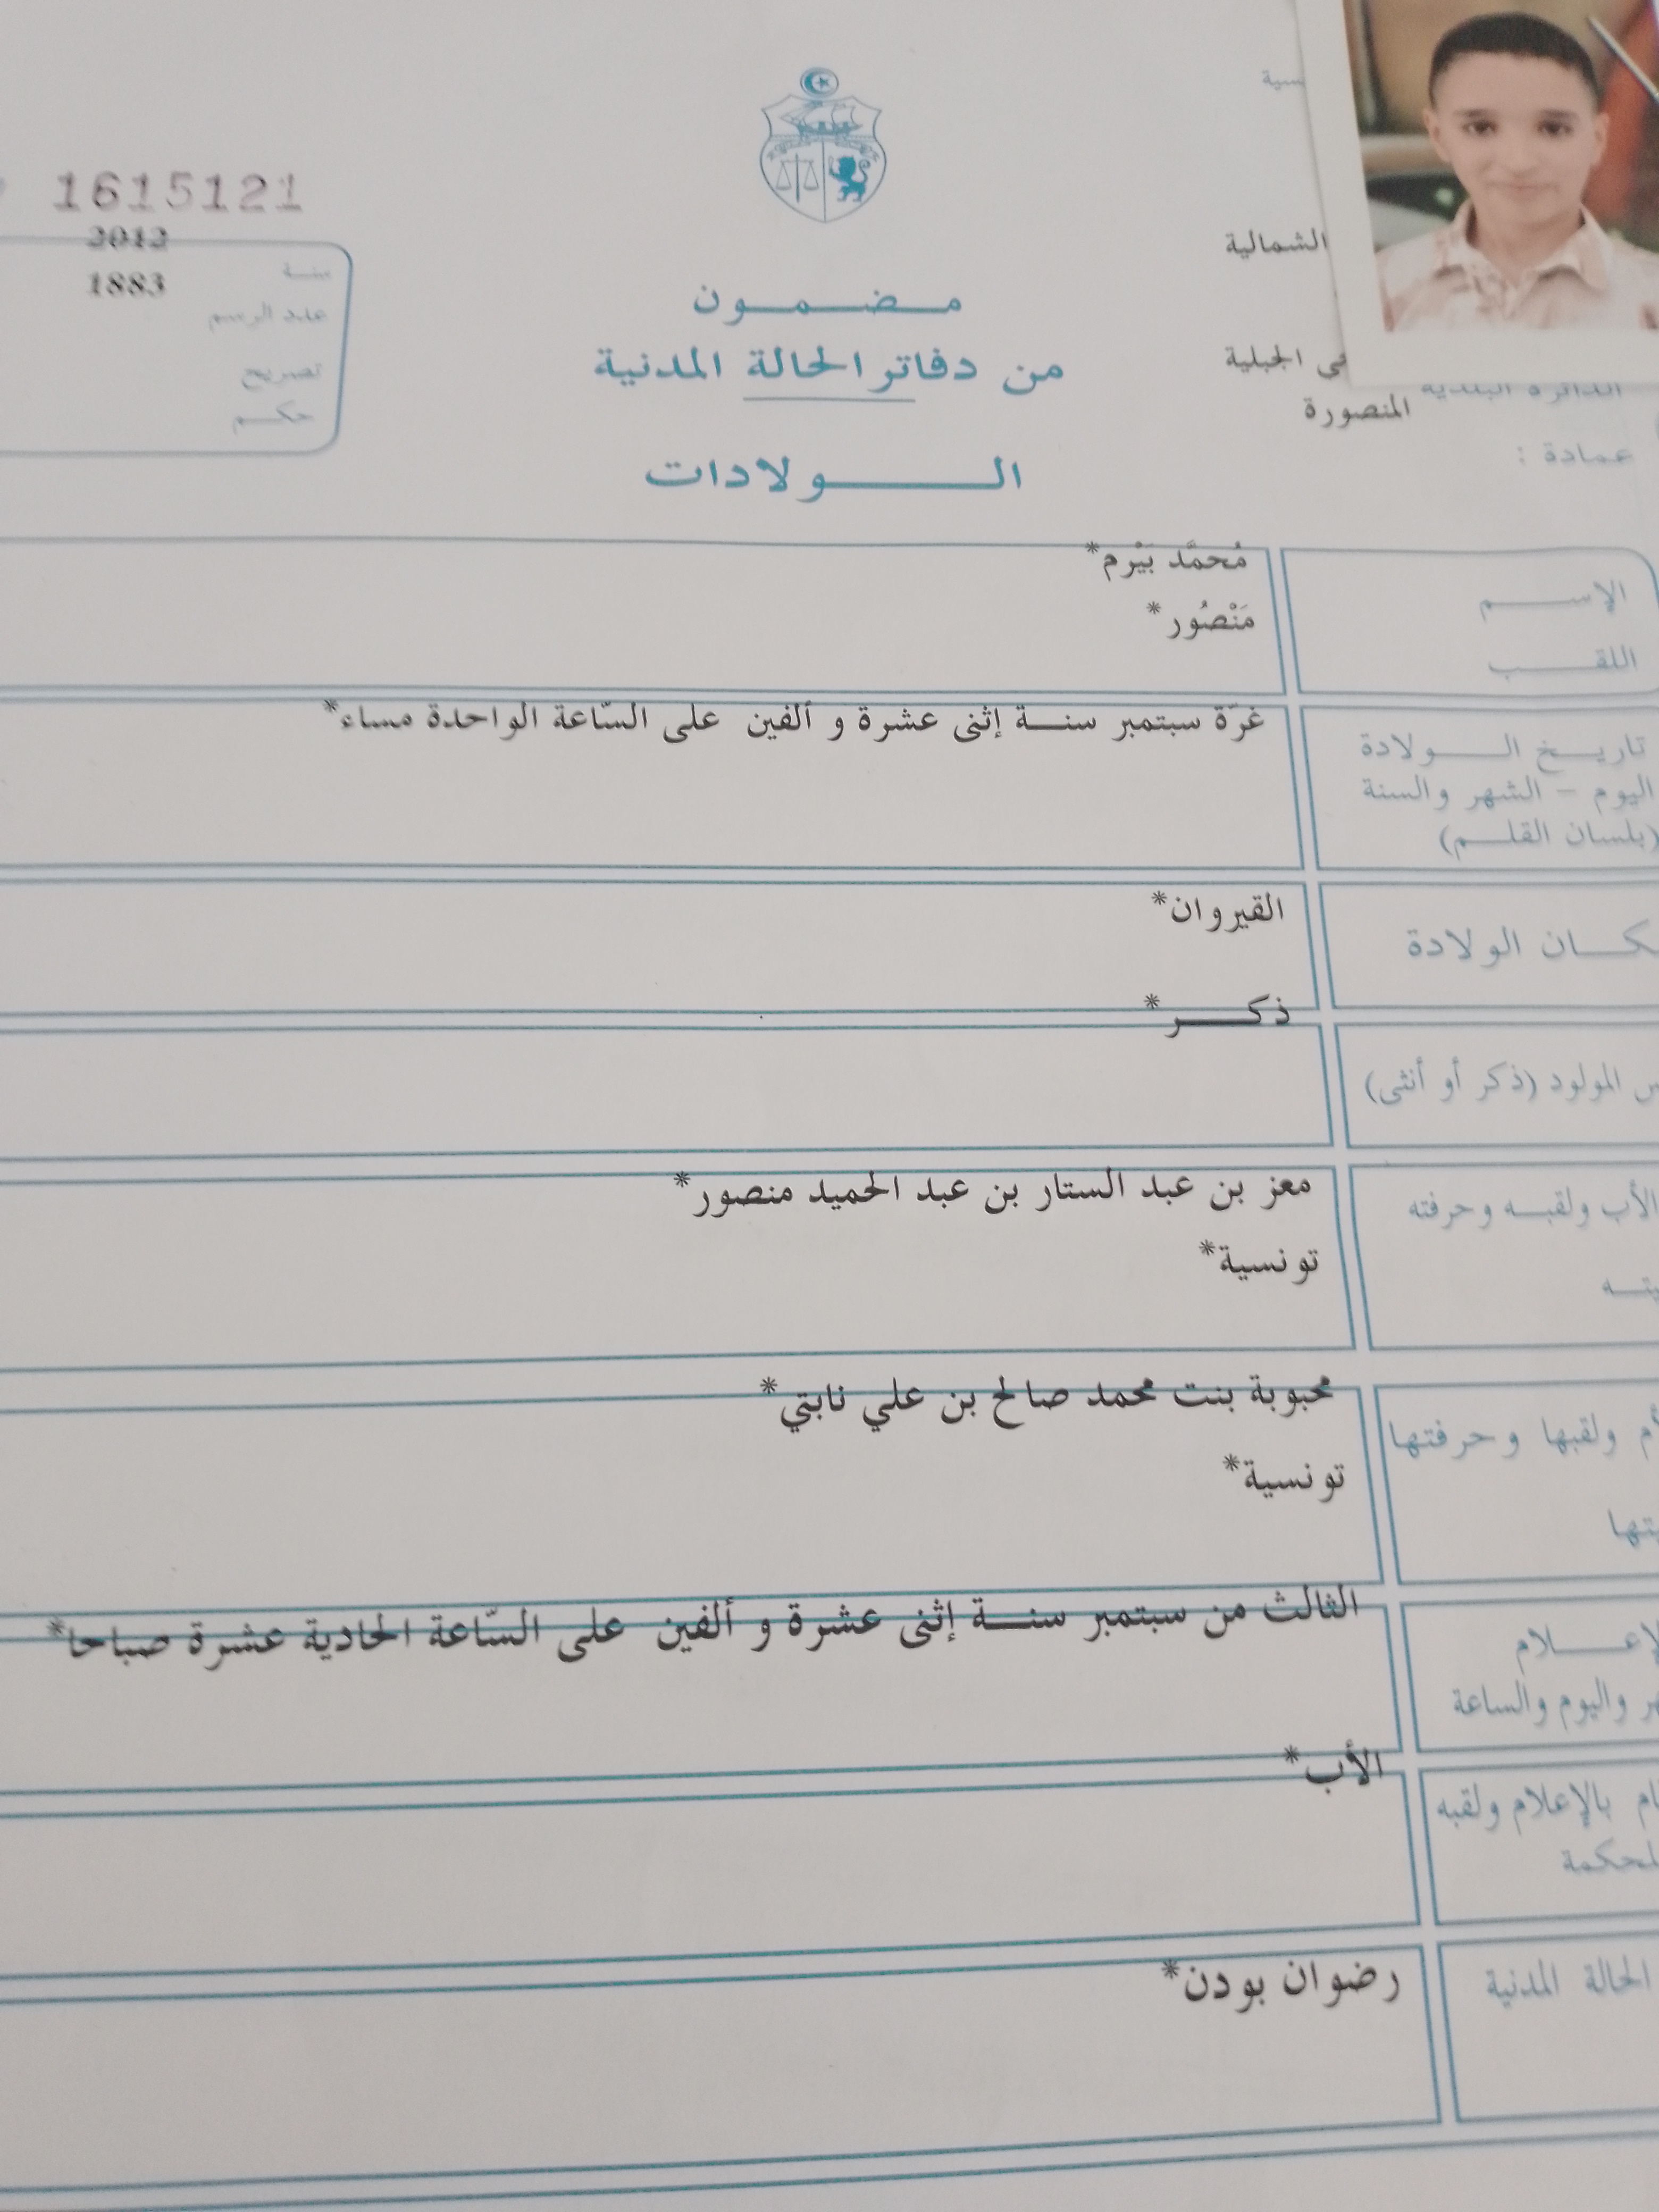 1615121
2012
سنة
1883
عدد الرسم
تصريح
حكم
مضمون
من دفاتر الحالة المدنية
الولادات
الشمالية
الجبلية
الدائرة البلدية
المنصورة
عمادة :
الإسم
مُحمَّد بَيْرم*
اللقب
مَنْصُور*
تاريخ الولادة
اليوم - الشهر والسنة
(بلسان القلم)
غرّة سبتمبر سنة إثنى عشرة و ألفين على السّاعة الواحدة مساء*
الولادة
القيروان*
المولود (ذكر أو أنثى)
ذكر*
الأب ولقبه وحرفته
معز بن عبد الستار بن عبد الحميد منصور*
تونسية*
ولقبها وحرفتها
محبوبة بنت محمد صالح بن علي نابتي*
تونسية*
واليوم والساعة
الثالث من سبتمبر سنة إثنى عشرة و ألفين على السّاعة الحادية عشرة صباحا*
بالإعلام ولقبه
الأب*
الحالة المدنية
رضوان بودن*